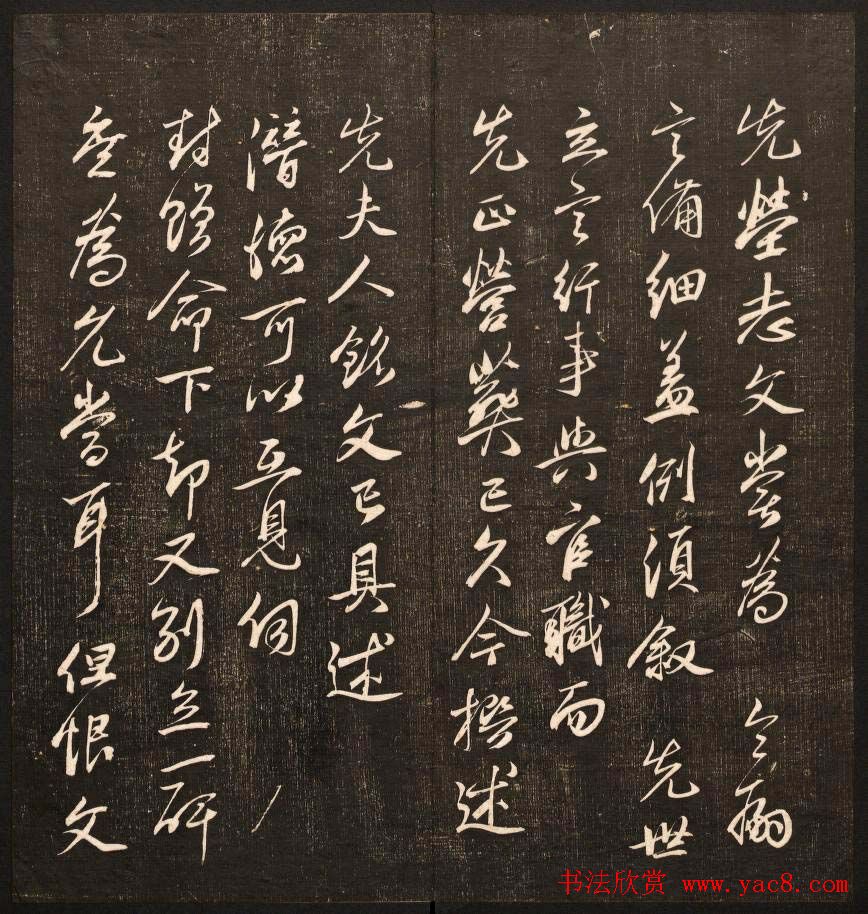 先塋志文嘗爲 令嗣
言備細蓋例須叙 先世
立言行事與官職而
先正營葬已久今撰述
先夫人銘文已具述
潛德可以互見何
封贈命下却又別立一碑
爲允當耳但恨文
书法欣赏 www.yac8.com